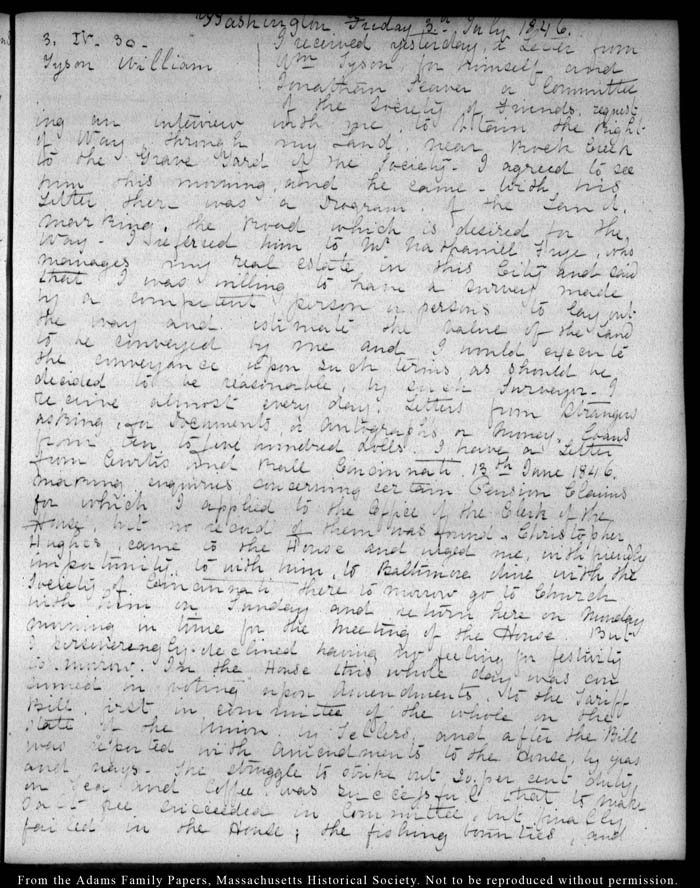 Washington, Friday 3d July 1846.
3. IV. 30.
Tyson William
I received yesterday, a Letter from
Wm Tyson, for himself and
Jonathan Seaver a Committee
of the Society of Friends, request-
ing an interview with me, to obtain the Right
of Way through my Land, near Rock Creek
to the Grave Yard of the Society. I agreed to see
him this morning and he came - With his
Letter there was a Program of the Land.
marking, the Road which is desired for the
Way - I referred him to Mr Nathaniell Frye, who
manages my real estate in this City and said
that I was willing to have a survey made
by a competent person or persons to lay out
the way and estimate the value of the Land
to be conveyed by me and I would execute
the conveyance upon such terms as should be
decided to be reasonable, by such Surveyor - I
receive almost every day, Letters from Strangers
asking, for Documents, or Autographs or Money,
from ten to five hundred dolls. I have a Letter
from Curtis and Ball Cincinnati, 13th June 1846.
making enquiries concerning certain Pension Claims
for which I applied to the Office of the Clerk of the
House, but no record of them was found. Christopher
Hughes came to the House and urged me, with friendly
importunity, to with him, to Baltimore dine with the
Society of Cincinnati, there to morrow go to Church
with him on Sunday and return here on Monday
morning in time for the meeting of the House. But
I perseveringly declined having no feeling for festivity
to morrow. In the House this whole day was con
sumed in voting upon Amendments, to the Tariff
Bill, first in committee of the whole on the
state of the Union, in Tellers, and after the Bill
was reported with amendments to the House, by yeas
and nays - The struggle to strike out 20 per cent duty
on Tea and Coffee was successful that to make
Salt free succeeded in Committee, but finally
failed in the House; the fishing bounties, and
From the Adams Family Papers, Massachusetts Historical Society. Not to be reproduced without permission.